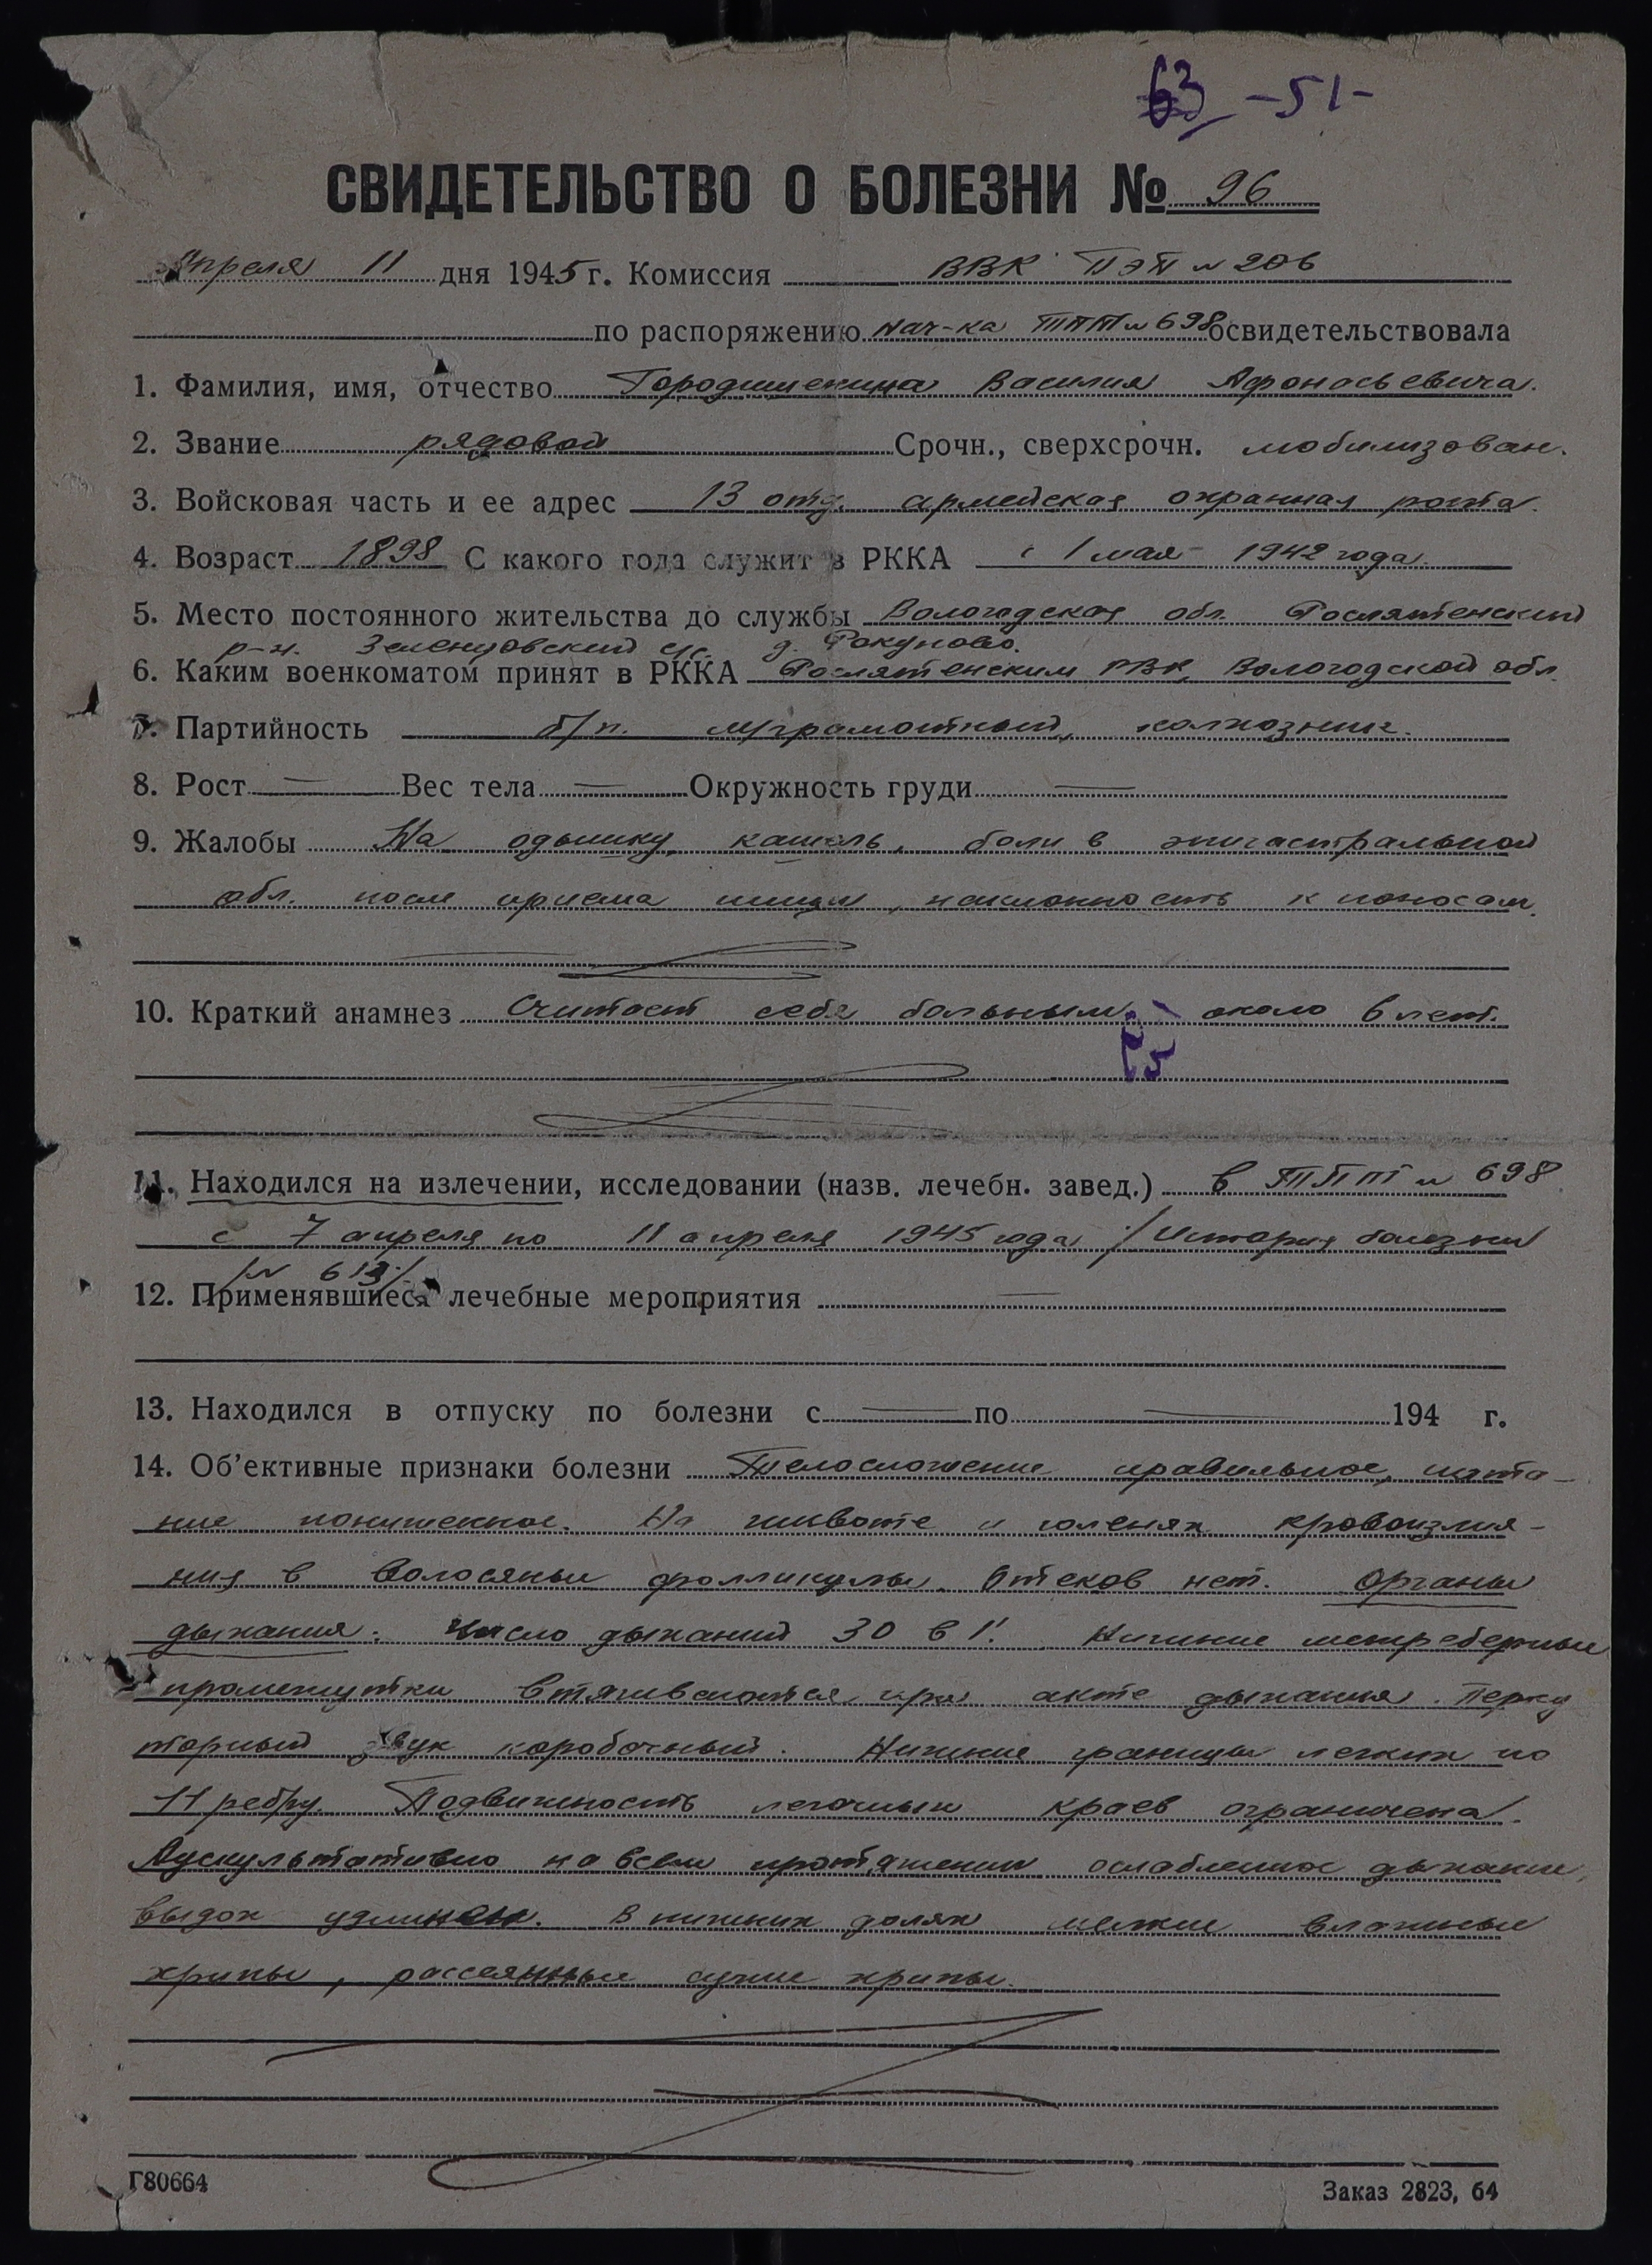 63 -51-
СВИДЕТЕЛЬСТВО О БОЛЕЗНИ № 96
Апреля 11 дня 1945 г. Комиссия ВВК ПЭП № 206
по распоряжению нач-ка ТППГ № 698 освидетельствовала
1. Фамилия, имя, отчество Василия Афонасьевича.
2. Звание рядовой Срочн., сверхсрочн. мобилизован.
3. Войсковая часть и ее адрес 13 отд. армейская охранная рота.
4. Возраст 1898 С какого года служит в РККА с 1 мая 1942 года.
5. Место постоянного жительства до службы Вологодская обл. Рослятенский
р-н. Зеленцовский с/с. д. Ракуново.
6. Каким военкоматом принят в РККА Рослятенским РВК, Вологодской обл.
7. Партийность б/п. м/грамотный, колхозник.
8. Рост — Вес тела — Окружность груди —
9. Жалобы На одышку, кашель, боли в эпигастральной
обл. после приема пищи, наклонность к поносам.
10. Краткий анамнез Считает себя больным около 6 лет.
11. Находился на излечении, исследовании (назв. лечебн. завед.) в ТППГ № 698
с 7 апреля по 11 апреля 1945 года /История болезни
/№ 613/.
12. Применявшиеся лечебные мероприятия —
13. Находился в отпуску по болезни с — по — 194 г.
14. Об'ективные признаки болезни Телосложение правильное, пита-
ние пониженное. На животе и голенях кровоизлия-
ния в волосяные фолликулы. Отеков нет. Органы
дыхания: Число дыханий 30 в 1'. Нижние межреберные
промежутки втягиваются при акте дыхания. Перку
торный звук коробочный. Нижние границы легких по
11 ребру. Подвижность легочных краев ограничена.
Аускультативно на всем протяжении ослабленное дыхание,
выдох удлинен. В нижних долях мелкие влажные
хрипы, рассеянные сухие хрипы.
Г80664 Заказ 2823, 64